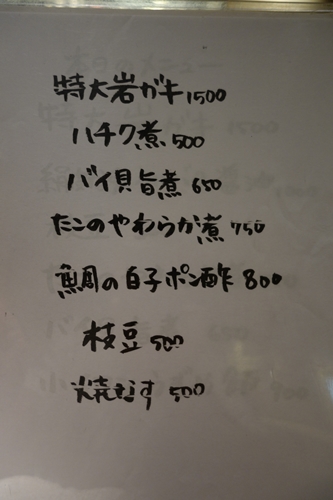 特大岩ガキ 1500
ハチク煮 500
バイ貝旨煮 650
たこのやわらか煮 750
鯛の白子ポン酢 800
枝豆 500
焼なす 500